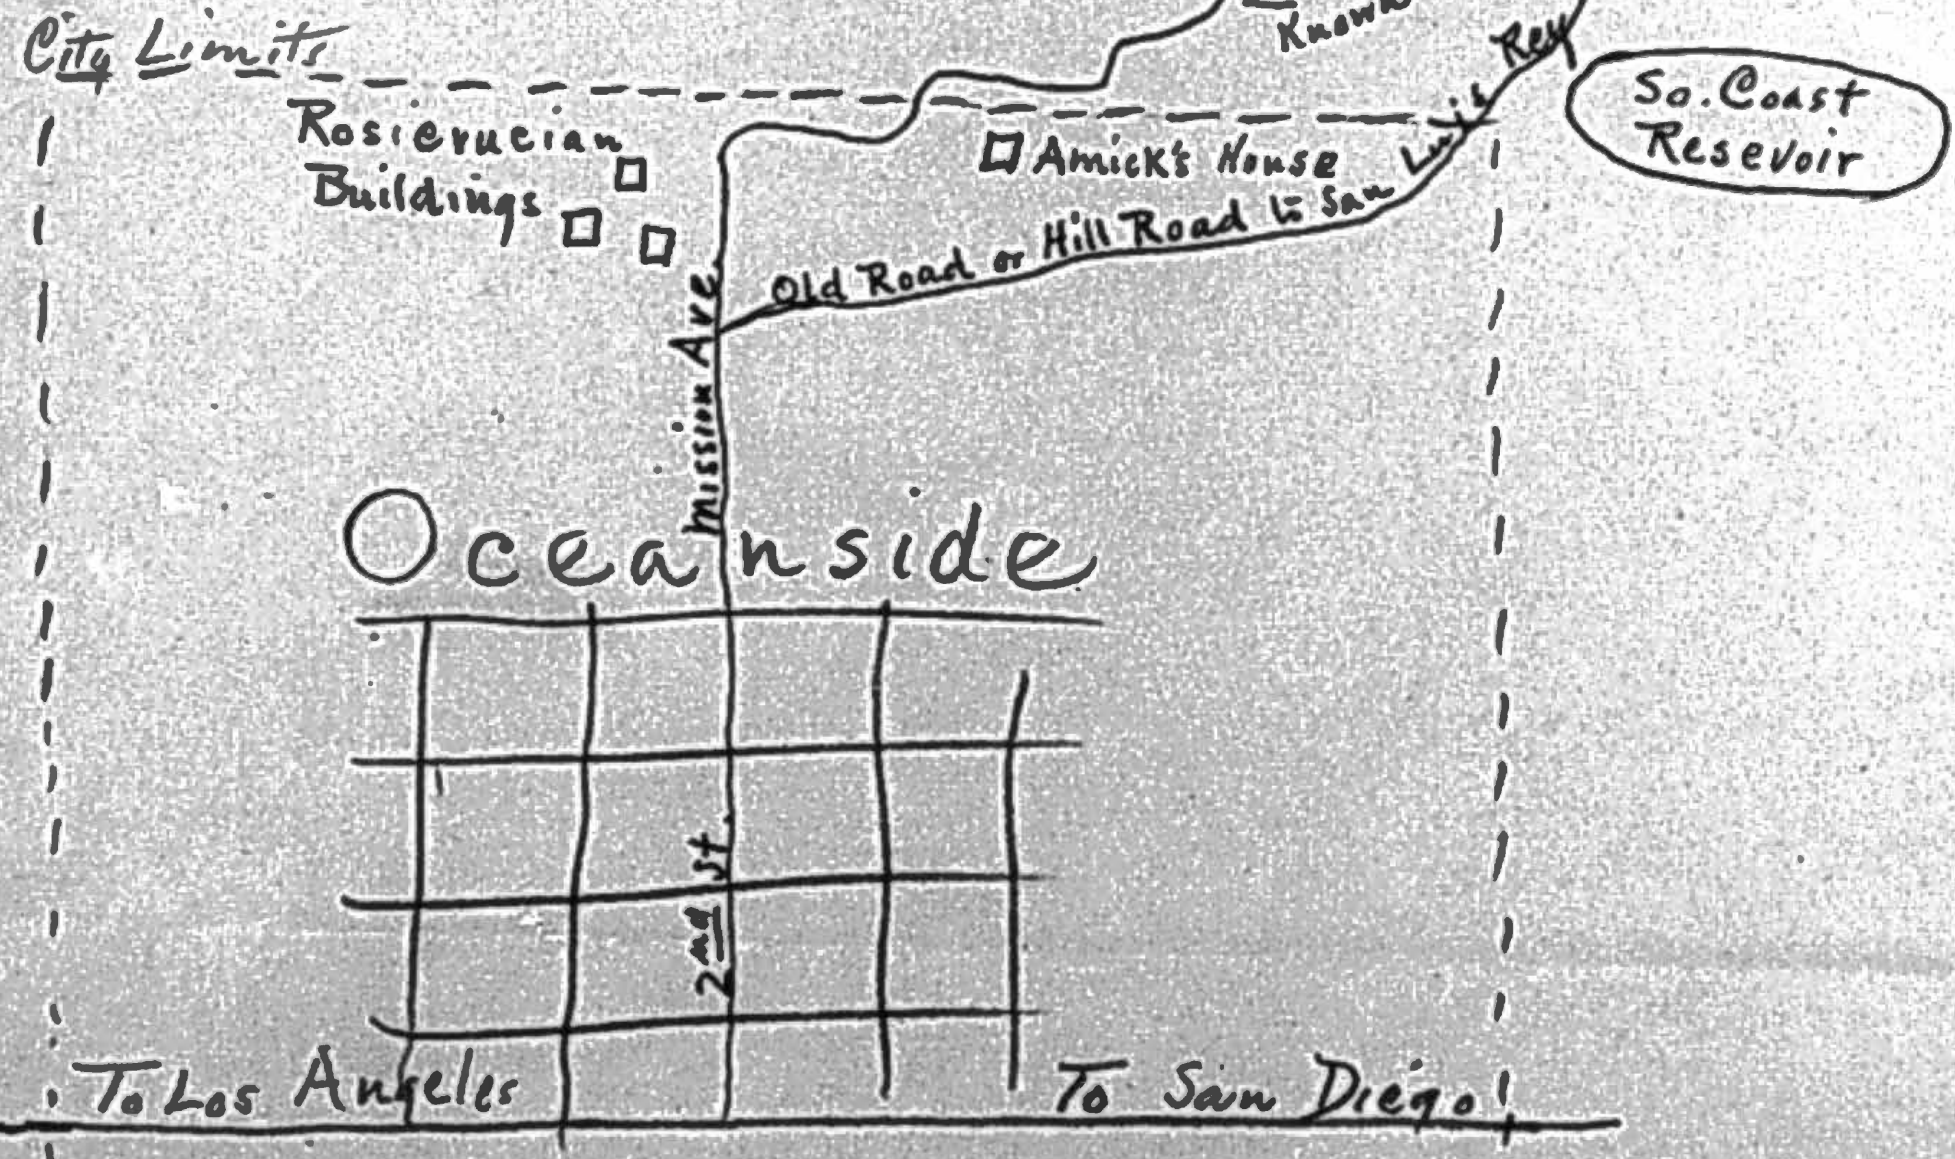 City Limits
Known
So. Coast
Resevoir
Rosicrucian
Buildings
Amick's House
Old Road or Hill Road to San Luis Rey
Mission Ave.
Oceanside
2nd St.
To Los Angeles
To San Diego